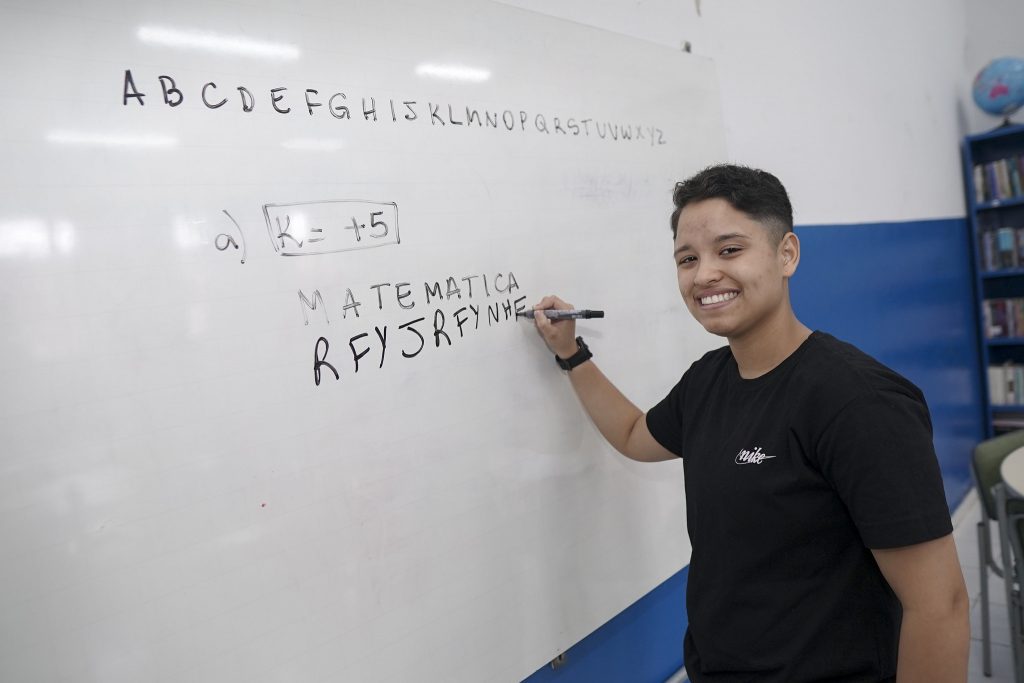 A B C D E F G H I J K L M N O P Q R S T U V W X Y Z
a) K = +5
MATEMATICA
RFYJRFYNHF
nike